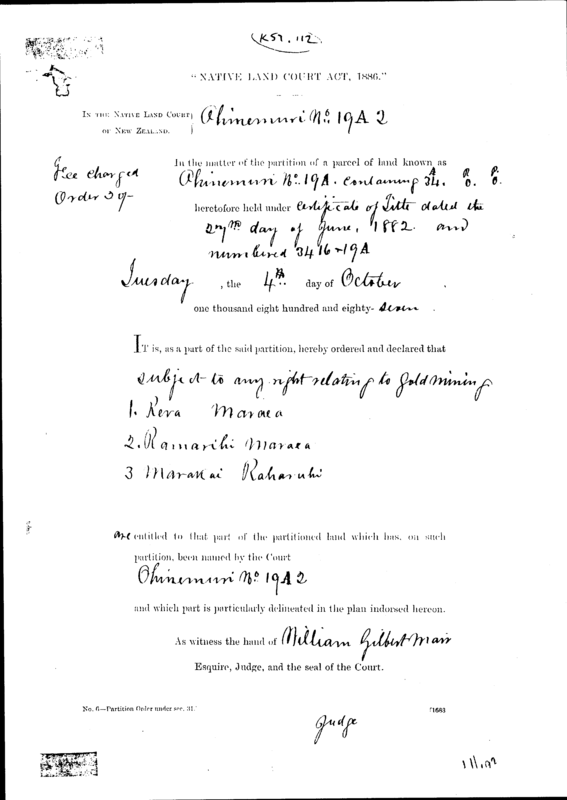 K57. 112
"NATIVE LAND COURT ACT, 1886."
IN THE NATIVE LAND COURT
OF NEW ZEALAND.
Ohinemuri No. 19A 2
Fee charged
Order 20/-
In the matter of the partition of a parcel of land known as
Ohinemuri No. 19A. containing 34. 0. 0.
A. R. P.
heretofore held under Certificate of Title dated the
27th day of June, 1882. and
numbered 3416-19A
Tuesday, the 4th day of October.
one thousand eight hundred and eighty-seven.
IT is, as a part of the said partition, hereby ordered and declared that
subject to any right relating to Gold mining
1. Kera Maraea
2. Ramarihi Maraea
3 Marakai Raharuhi
are entitled to that part of the partitioned land which has, on such
partition, been named by the Court
Ohinemuri No. 19A2
and which part is particularly delineated in the plan indorsed hereon.
As witness the hand of William Gilbert Mair
Esquire, Judge, and the seal of the Court.
No. 6—Partition Order under sec. 31.
Judge